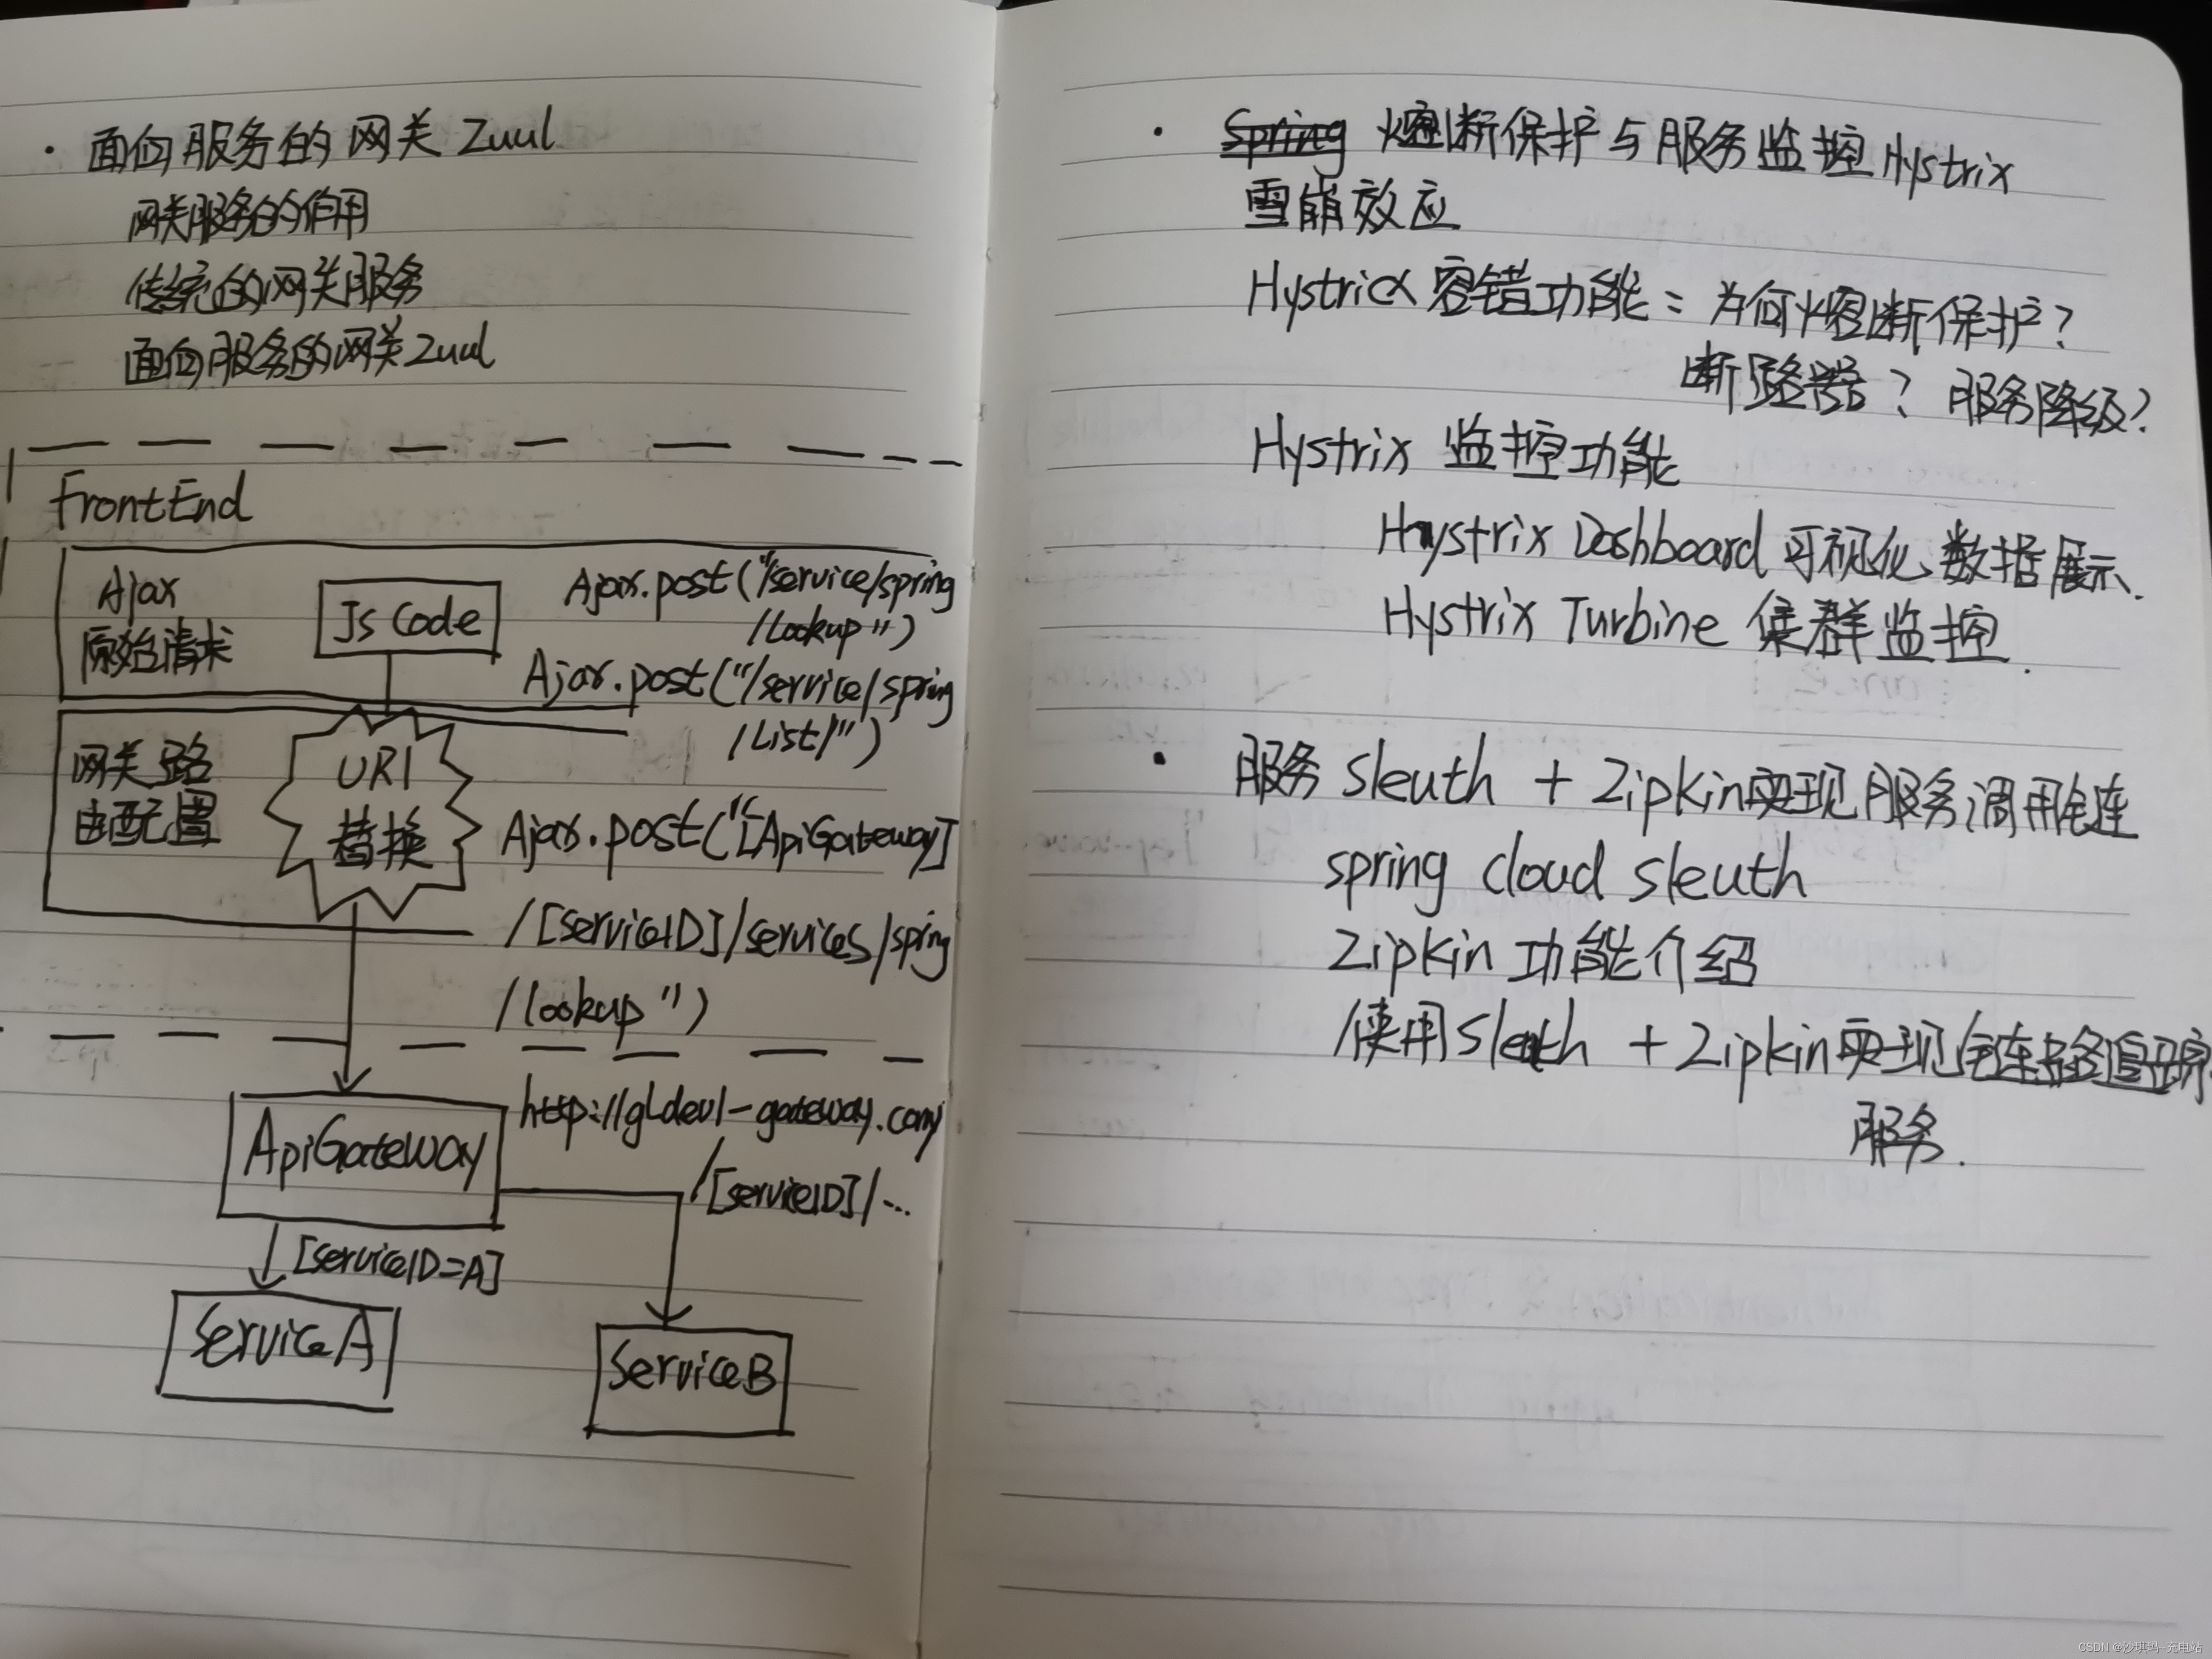 · 面向服务的网关 Zuul
网关服务的作用
传统的网关服务
面向服务的网关 Zuul
FrontEnd
Ajax
原始请求
Js Code
Ajax.post("/service/spring
/Lookup")
Ajax.post("/service/spring
/List/")
网关路
由配置
URI
替换
Ajax.post("[ApiGateway]
/[serviceID]/services/spring
/lookup")
ApiGateway
http://gldev1-gateway.com/
/[serviceID]/...
[serviceID=A]
ServiceA
ServiceB
· Spring 熔断保护与服务监控 Hystrix
雪崩效应
Hystrix 容错功能: 为何熔断保护?
断路器? 服务降级?
Hystrix 监控功能
Hystrix Dashboard 可视化数据展示.
Hystrix Turbine 集群监控.
· 服务 Sleuth + Zipkin实现服务调用链
spring cloud sleuth
Zipkin 功能介绍
使用Sleuth + Zipkin实现链路追踪
服务.
CSDN @沙琪玛-充电站